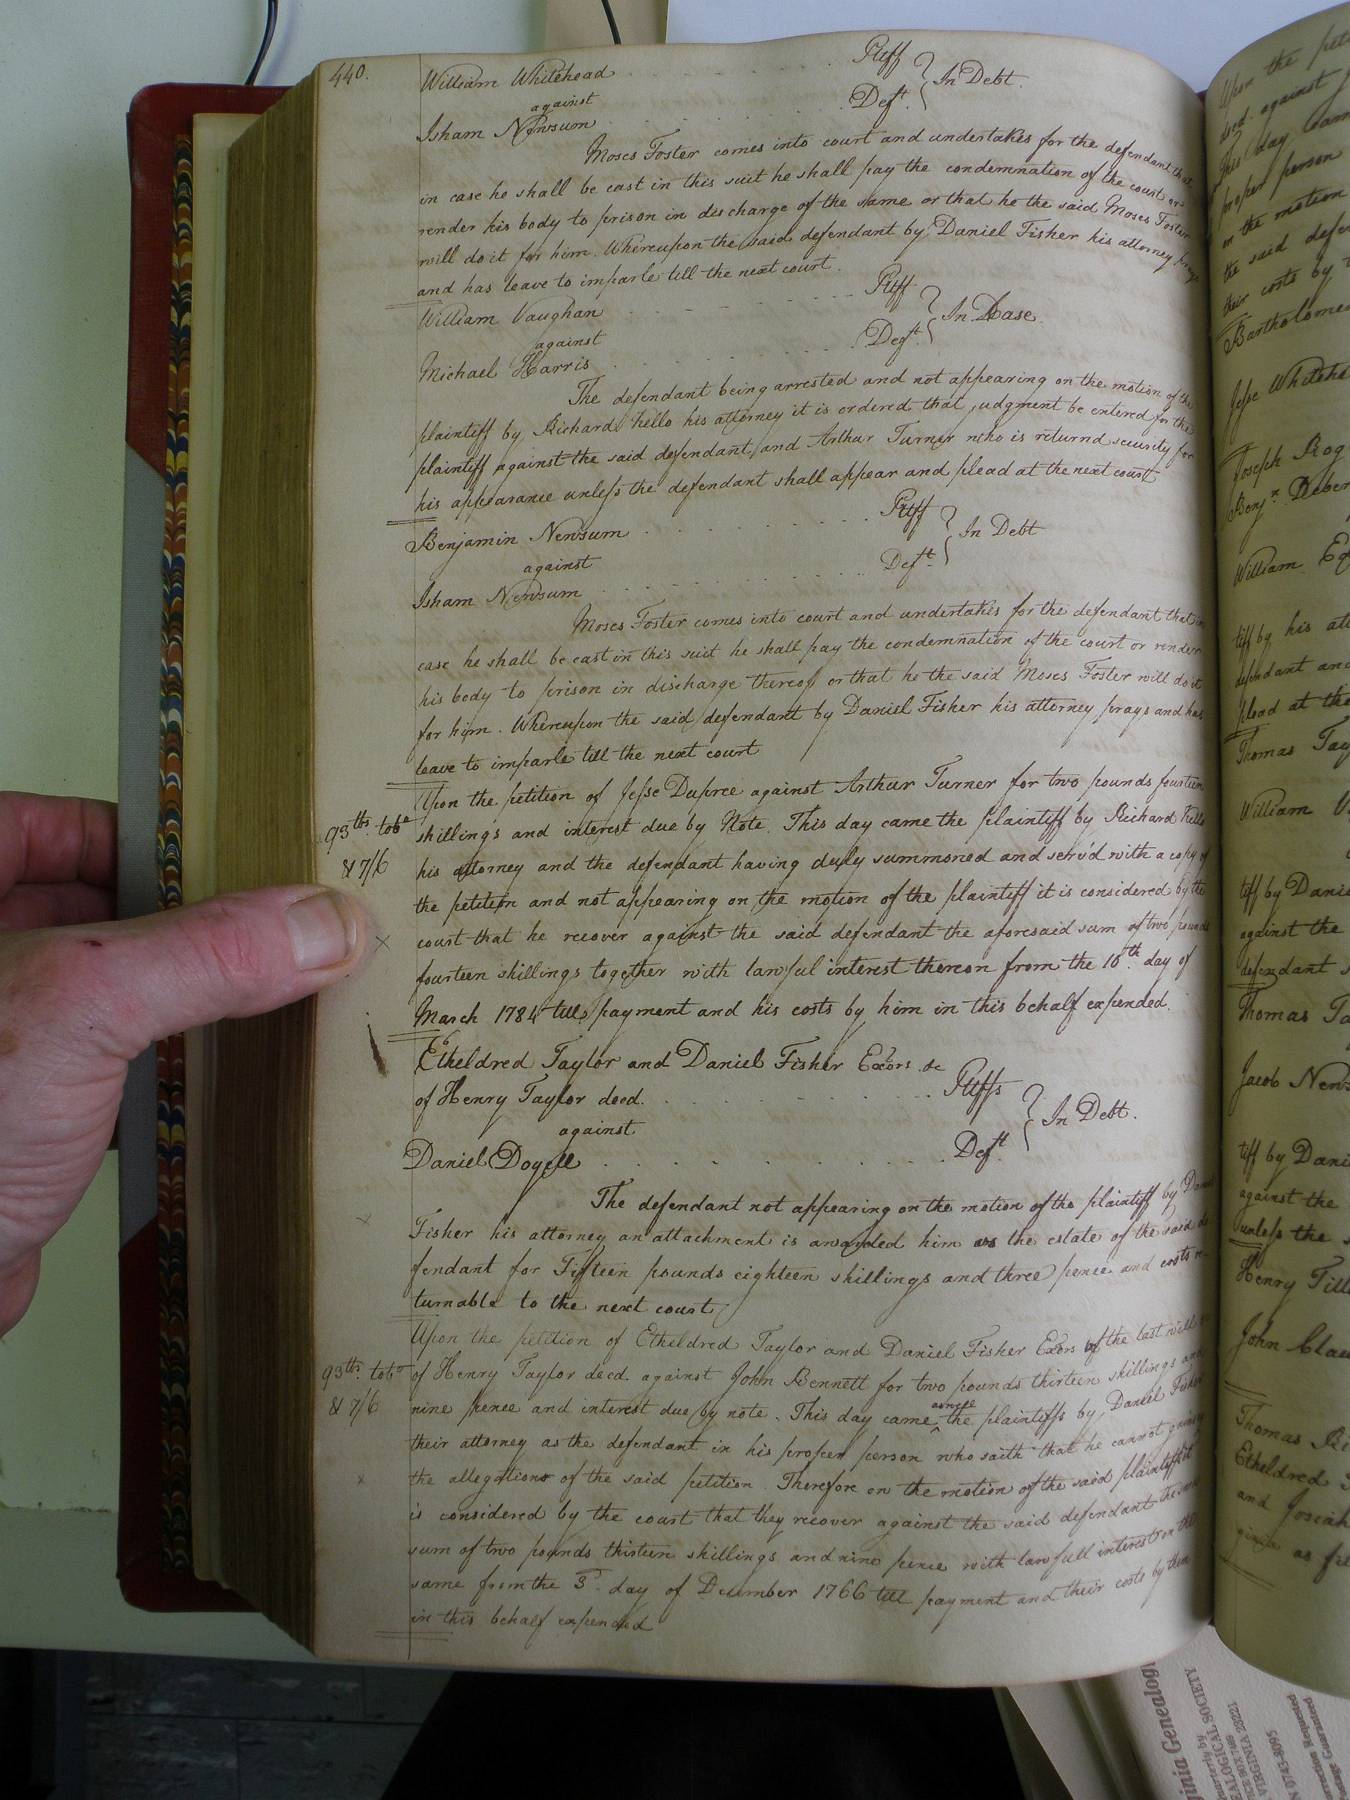 440.
William Whitehead Pltff
against In Debt
Isham Newsum Deft.
Moses Foster comes into court and undertakes for the defendant that
in case he shall be cast in this suit he shall pay the condemnation of the court or
render his body to prison in discharge of the same or that he the said Moses Foster
will do it for him. Whereupon the said defendant by Daniel Fisher his attorney prays
and has leave to imparle till the next court.
William Vaughan Pltff
against In Case
Michael Harris Deft.
The defendant being arrested and not appearing on the motion of the
plaintiff by Richard Kello his attorney it is ordered that judgment be entered for the
plaintiff against the said defendant and Arthur Turner who is returnd security for
his appearance unless the defendant shall appear and plead at the next court
Benjamin Newsum Pltff
against In Debt
Isham Newsum Deft.
Moses Foster comes into court and undertakes for the defendant that in
case he shall be cast in this suit he shall pay the condemnation of the court or render
his body to prison in discharge thereof or that he the said Moses Foster will do it
for him. Whereupon the said defendant by Daniel Fisher his attorney prays and has
leave to imparle till the next court
Upon the petition of Jesse Dupree against Arthur Turner for two pounds fourteen
93 ths. tobo shillings and interest due by Note. This day came the plaintiff by Richard Kello
& 7/6 his attorney and the defendant having duly summoned and serv'd with a copy of
the petition and not appearing on the motion of the plaintiff it is considered by the
court that he recover against the said defendant the aforesaid sum of two pounds
fourteen shillings together with lawful interest thereon from the 10th day of
March 1784 till payment and his costs by him in this behalf expended.
Etheldred Taylor and Daniel Fisher Exors. &c
of Henry Taylor decd. Pltffs
against In Debt.
Daniel Doyell Deft.
The defendant not appearing on the motion of the plaintiff by Daniel
Fisher his attorney an attachment is awarded him vs the estate of the said de
fendant for Fifteen pounds eighteen shillings and three pence and costs re-
turnable to the next court
Upon the petition of Etheldred Taylor and Daniel Fisher Exors of the last will &
93ths. tobo of Henry Taylor decd. against John Bennett for two pounds thirteen shillings and
& 7/6 nine pence and interest due by note. This day came as well the plaintiffs by Daniel Fisher
their attorney as the defendant in his proper person who saith that he cannot gainsay
the allegations of the said petition. Therefore on the motion of the said plaintiffs it
is considered by the court that they recover against the said defendant the said
sum of two pounds thirteen shillings and nine pence with lawfull interest on the
same from the 3d. day of December 1766 till payment and their costs by them
in this behalf expended
Upon the peti
decd. against J
This day came
proper person
on the motion
the said defen
their costs by
Bartholomew
Jesse Whitehe
Joseph Rog
Benjn. Deber
William
tiff by his att
defendant and
plead at the
Thomas Tay
William V
tiff by Danie
against the
defendant
Thomas Ta
Jacob News
tiff by Dani
against the
unless the
Henry Till
John Clau
Thomas
Etheldred
and Josiah
as
inia Genealog
quarterly by
EALOGICAL SOCIETY
CE BOX 7469
VIRGINIA 23221
N 0743-8095
rrection Requested
ostage Guaranteed